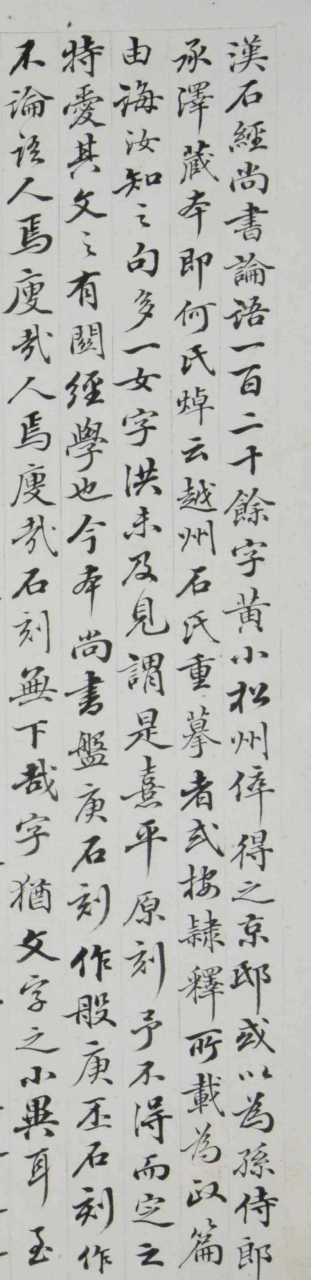 漢石經尚書論語一百二十餘字黃小松州倅得之京邸或以為孫侍郎
承澤藏本即何氏焯云越州石氏重摹者或按隸釋所載為政篇
由誨汝知之句多一女字洪未及見謂是熹平原刻予不得而定之
特愛其文之有關經學也今本尚書盤庚石刻作般庚丕石刻作
不論語人焉廋哉人焉廋哉石刻無下哉字猶文字之小異耳至